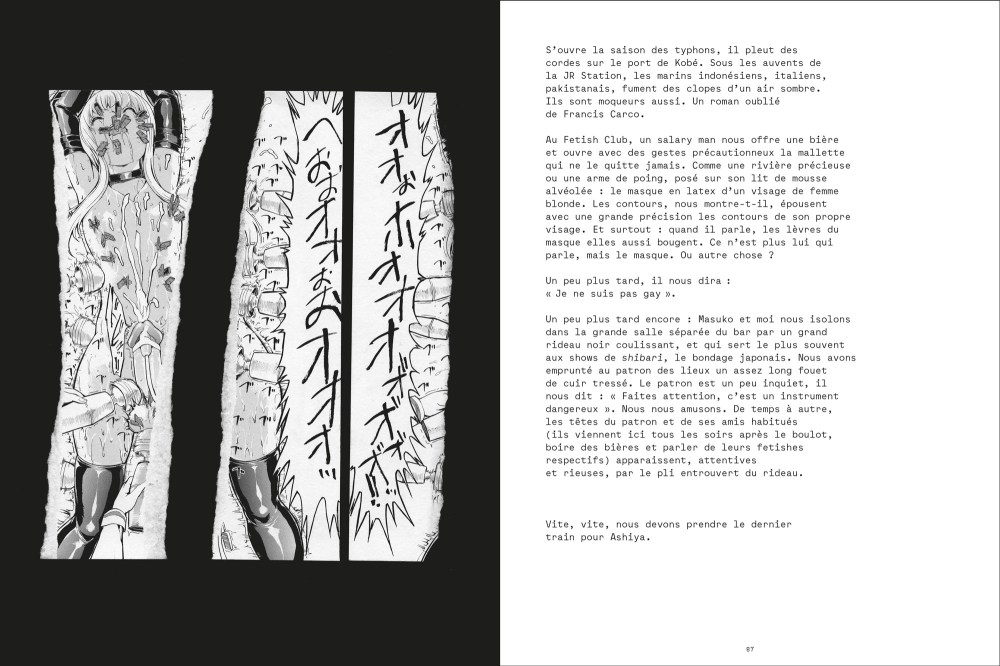 S’ouvre la saison des typhons, il pleut des
cordes sur le port de Kobé. Sous les auvents de
la JR Station, les marins indonésiens, italiens,
pakistanais, fument des clopes d’un air sombre.
Ils sont moqueurs aussi. Un roman oublié
de Francis Carco.
Au Fetish Club, un salary man nous offre une bière
et ouvre avec des gestes précautionneux la mallette
qui ne le quitte jamais. Comme une rivière précieuse
ou une arme de poing, posé sur son lit de mousse
alvéolée : le masque en latex d’un visage de femme
blonde. Les contours, nous montre-t-il, épousent
avec une grande précision les contours de son propre
visage. Et surtout : quand il parle, les lèvres du
masque elles aussi bougent. Ce n’est plus lui qui
parle, mais le masque. Ou autre chose ?
Un peu plus tard, il nous dira :
« Je ne suis pas gay ».
Un peu plus tard encore : Masuko et moi nous isolons
dans la grande salle séparée du bar par un grand
rideau noir coulissant, et qui sert le plus souvent
aux shows de shibari, le bondage japonais. Nous avons
emprunté au patron des lieux un assez long fouet
de cuir tressé. Le patron est un peu inquiet, il
nous dit : « Faites attention, c’est un instrument
dangereux ». Nous nous amusons. De temps à autre,
les têtes du patron et de ses amis habitués
(ils viennent ici tous les soirs après le boulot,
boire des bières et parler de leurs fetishes
respectifs) apparaissent, attentives
et rieuses, par le pli entrouvert du rideau.
Vite, vite, nous devons prendre le dernier
train pour Ashiya.
87